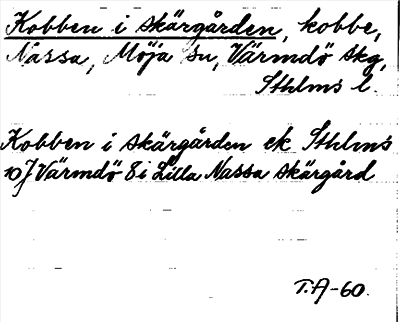 Kobben i skärgården, kobbe,
Nassa, Möja sn, Värmdö skg,
Sthlms l.
Kobben i skärgården ek Sthlms
10J Värmdö 8 i Lilla Nassa skärgård
T.A-60.